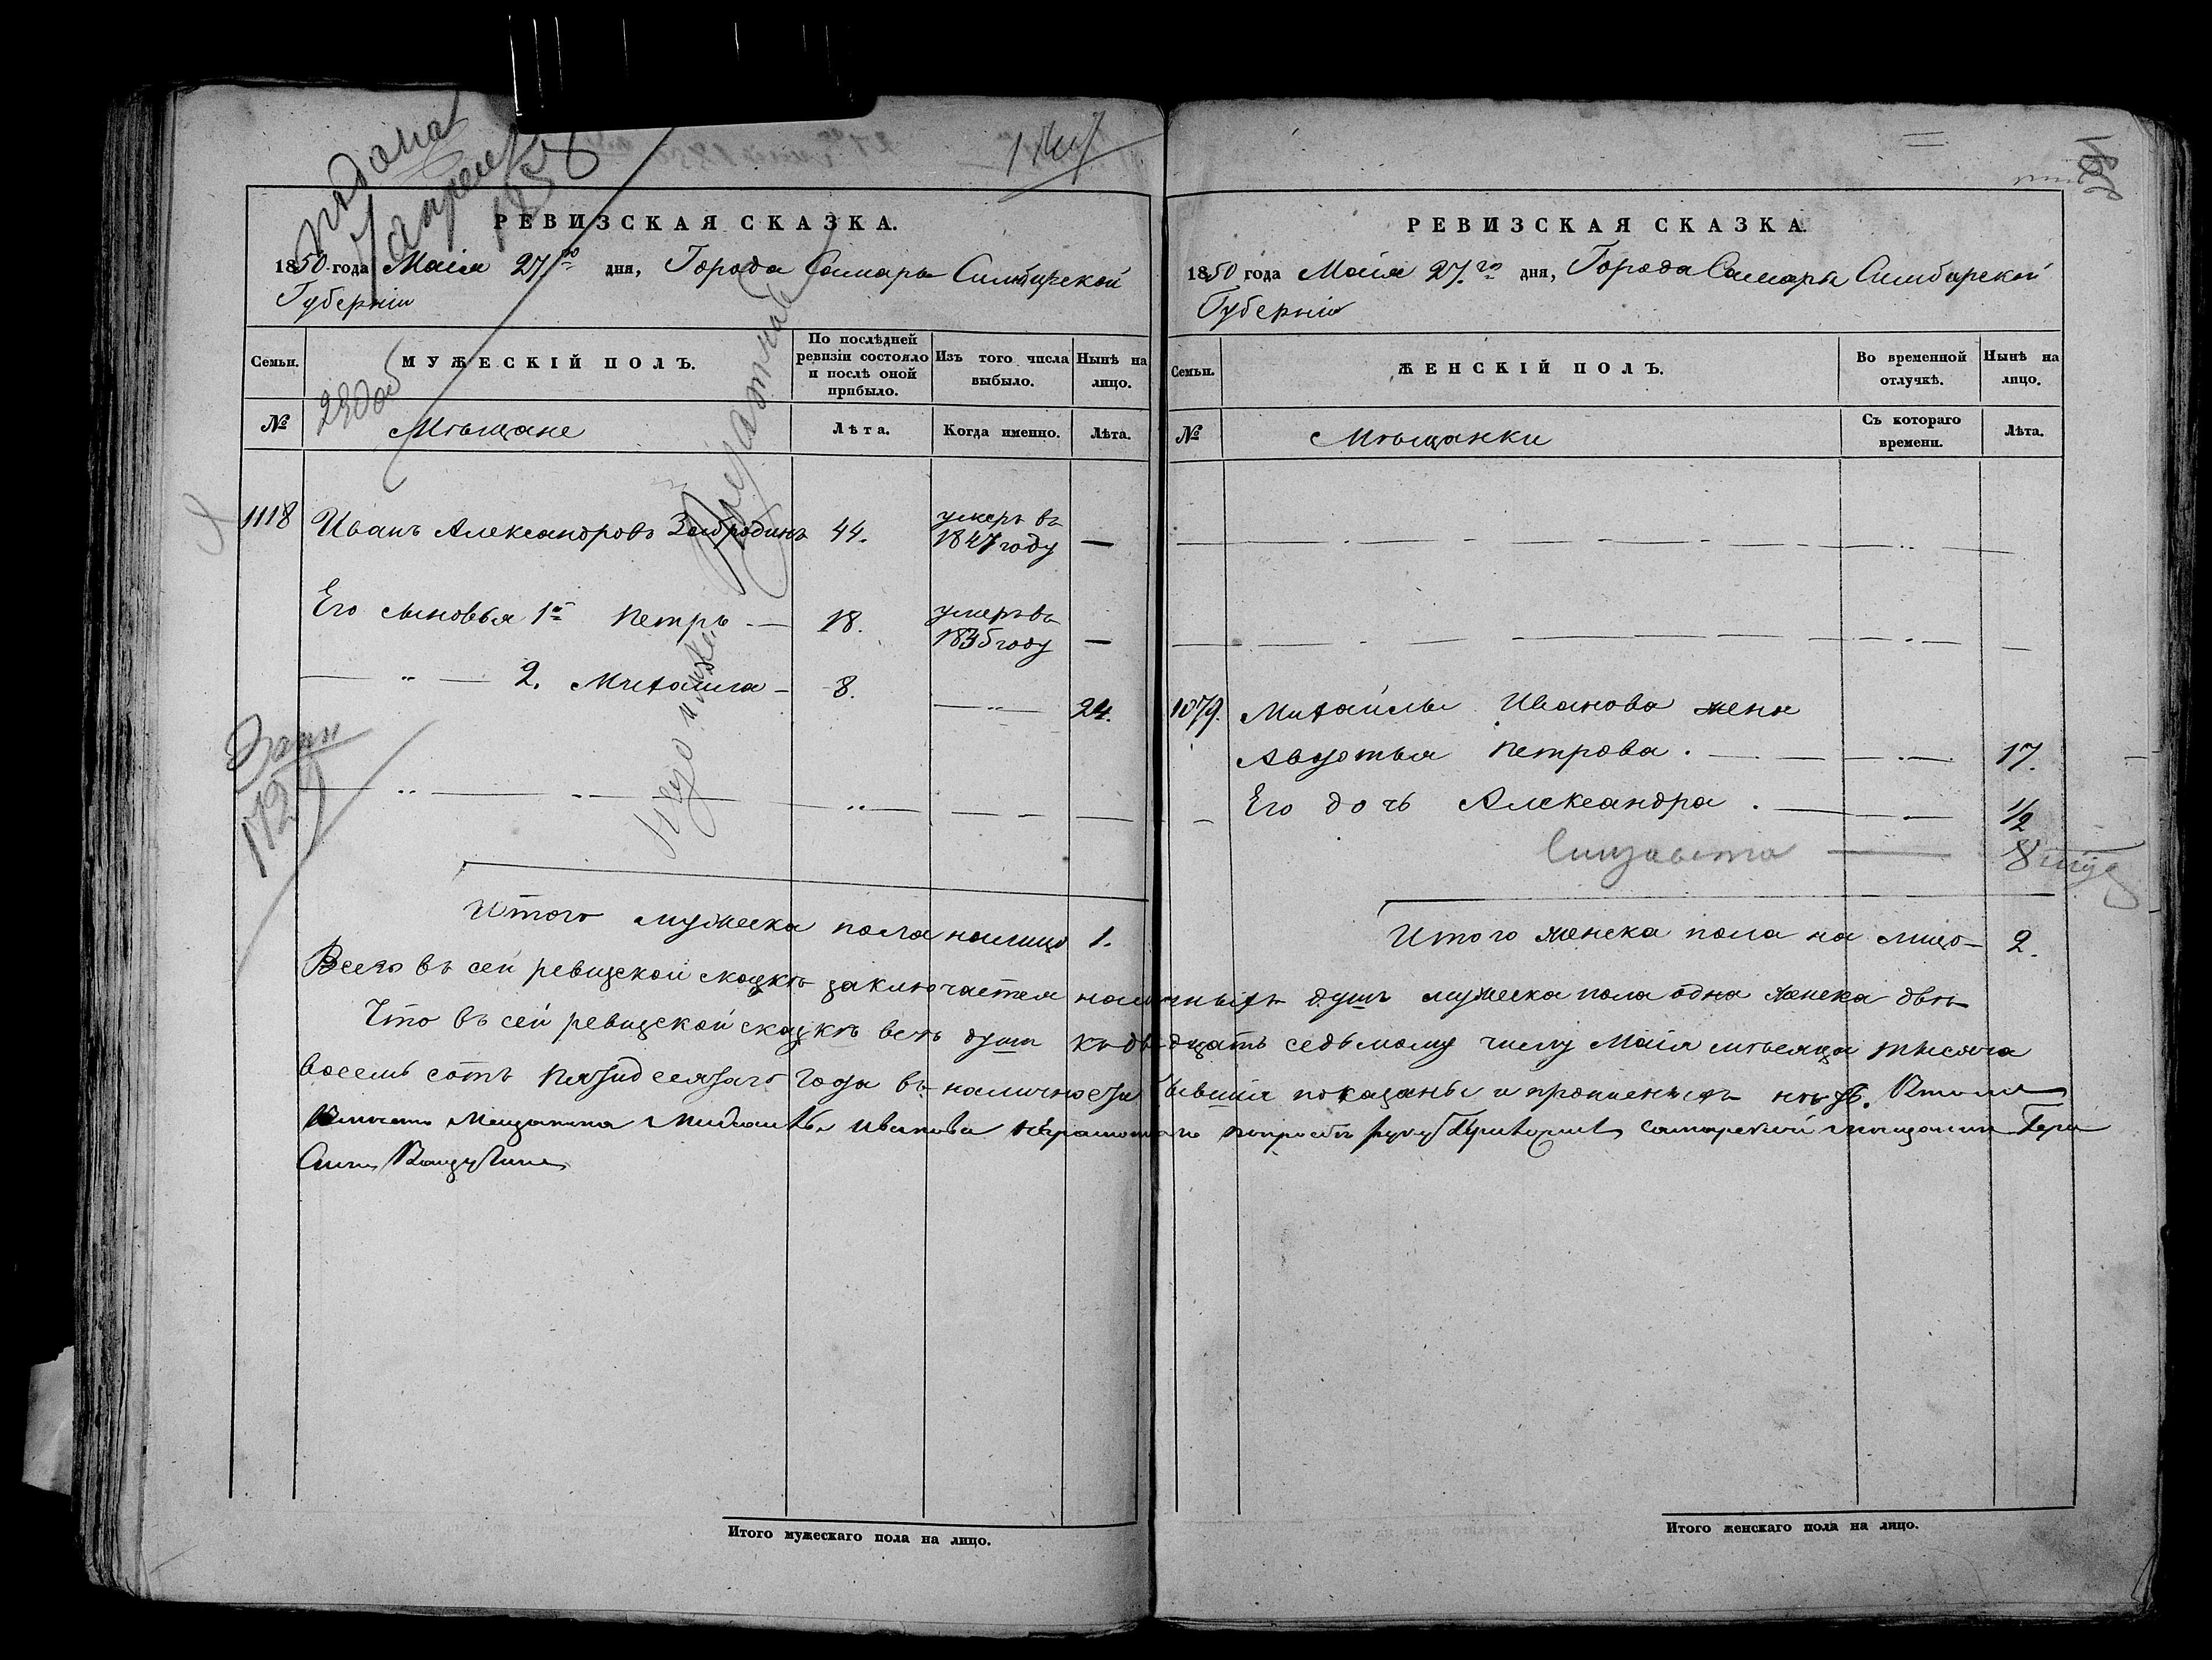 подана
7 апреля
185
РЕВИЗСКАЯ СКАЗКА.
1850 года Маія 27го дня, Города Самары Симбирской
Губерніи
Семьи.
МУЖЕСКІЙ ПОЛЪ.
По послѣдней ревизіи состояло и послѣ оной прибыло.
Изъ того числа выбыло.
Нынѣ на лицо.
№
Мѣщане
Лѣта.
Когда именно.
Лѣта.
1118 Иванъ Александровъ Забродинъ 44. умеръ въ 1847 году —
Его сыновья 1й Петръ — 18. умеръ въ 1835 году —
2. Михайла — 8. — 24.
Итого мужеска пола налицо 1.
РЕВИЗСКАЯ СКАЗКА.
1850 года Маія 27го дня, Города Самары Симбирской
Губерніи
Семьи.
ЖЕНСКІЙ ПОЛЪ.
Во временной отлучкѣ.
Нынѣ на лицо.
№
Мѣщанки
Съ котораго времени.
Лѣта.
1079. Михайлы Иванова жена
Авдотья Петрова. 17.
Его дочь Александра. 1/2
Елизавета 8
Итого женска пола на лицо 2.
Всего въ сей ревизской сказкѣ заключается наличныхъ душъ мужеска пола одна женска двѣ
Что въ сей ревизской сказкѣ всѣ души къ двадцать седьмому числу Маія мѣсяца тысяча
восемь сотъ пятидесятаго года въ наличности бывшія показаны и прописныхъ нѣтъ.
Мещанина Михайлы Иванова неграмотнаго попрозбѣ руку приложилъ самарской мещанинъ
Итого мужескаго пола на лицо.
Итого женскаго пола на лицо.